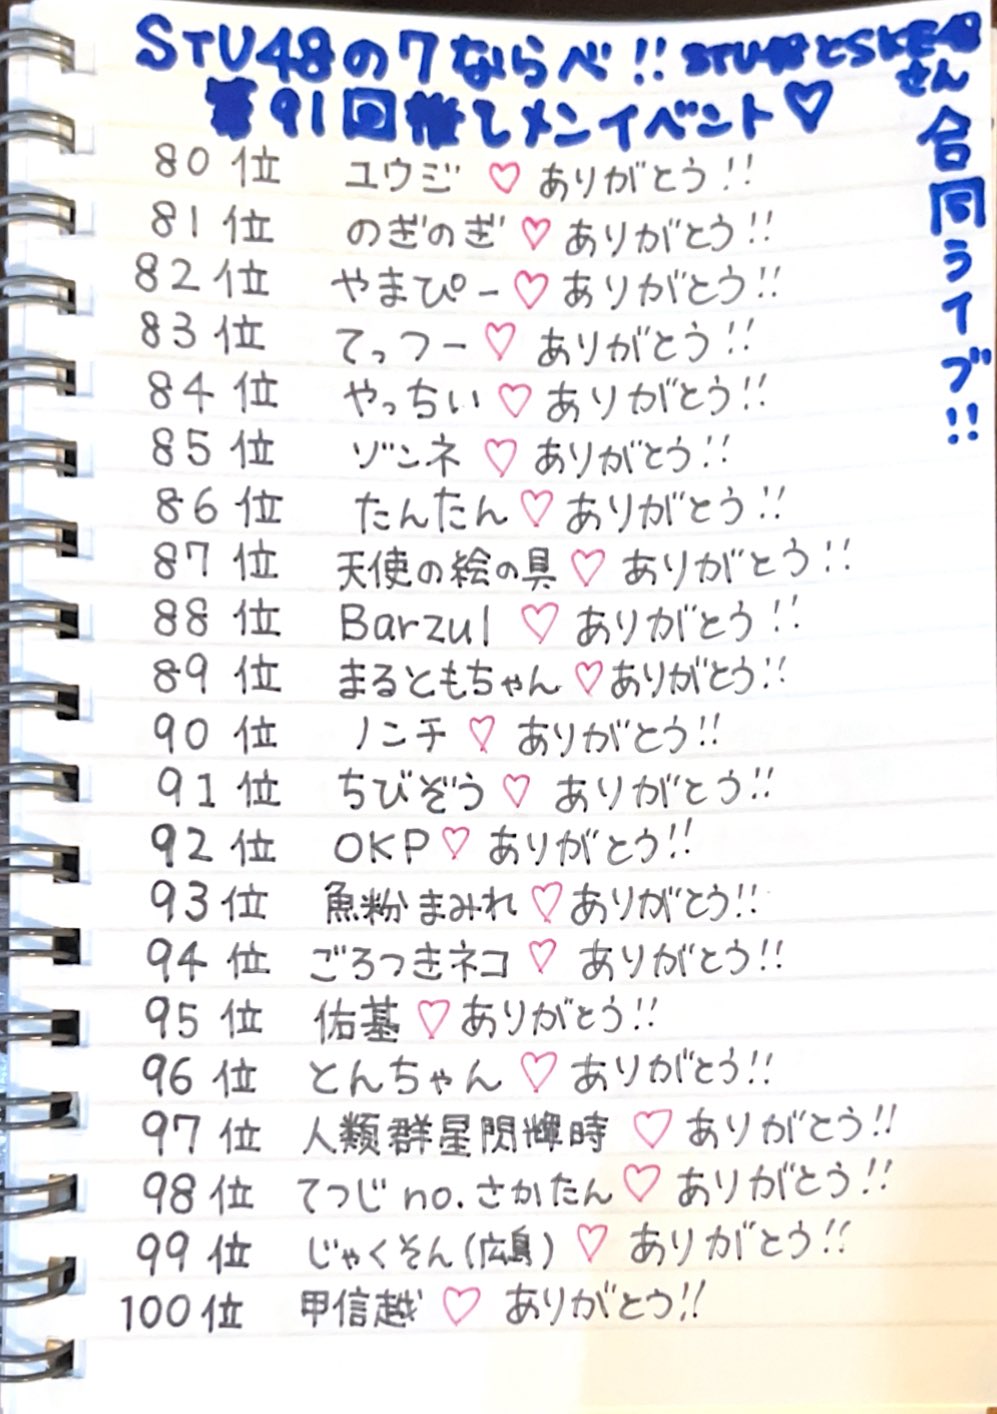 STU48の7ならべ!! STU48とSKE48さん
第91回推しメンイベント♡
合同ライブ!!
80位 ユウジ♡ありがとう!!
81位 のぎのぎ♡ありがとう!!
82位 やまぴー♡ありがとう!!
83位 てっつー♡ありがとう!!
84位 やっちい♡ありがとう!!
85位 ゾンネ♡ありがとう!!
86位 たんたん♡ありがとう!!
87位 天使の絵の具♡ありがとう!!
88位 Barzul♡ありがとう!!
89位 まるともちゃん♡ありがとう!!
90位 ノンチ♡ありがとう!!
91位 ちびぞう♡ありがとう!!
92位 OKP♡ありがとう!!
93位 魚粉まみれ♡ありがとう!!
94位 ごろつきネコ♡ありがとう!!
95位 佑基♡ありがとう!!
96位 とんちゃん♡ありがとう!!
97位 人類群星閃輝時♡ありがとう!!
98位 てつじno.さかたん♡ありがとう!!
99位 じゃくそん(広島)♡ありがとう!!
100位 甲信越♡ありがとう!!